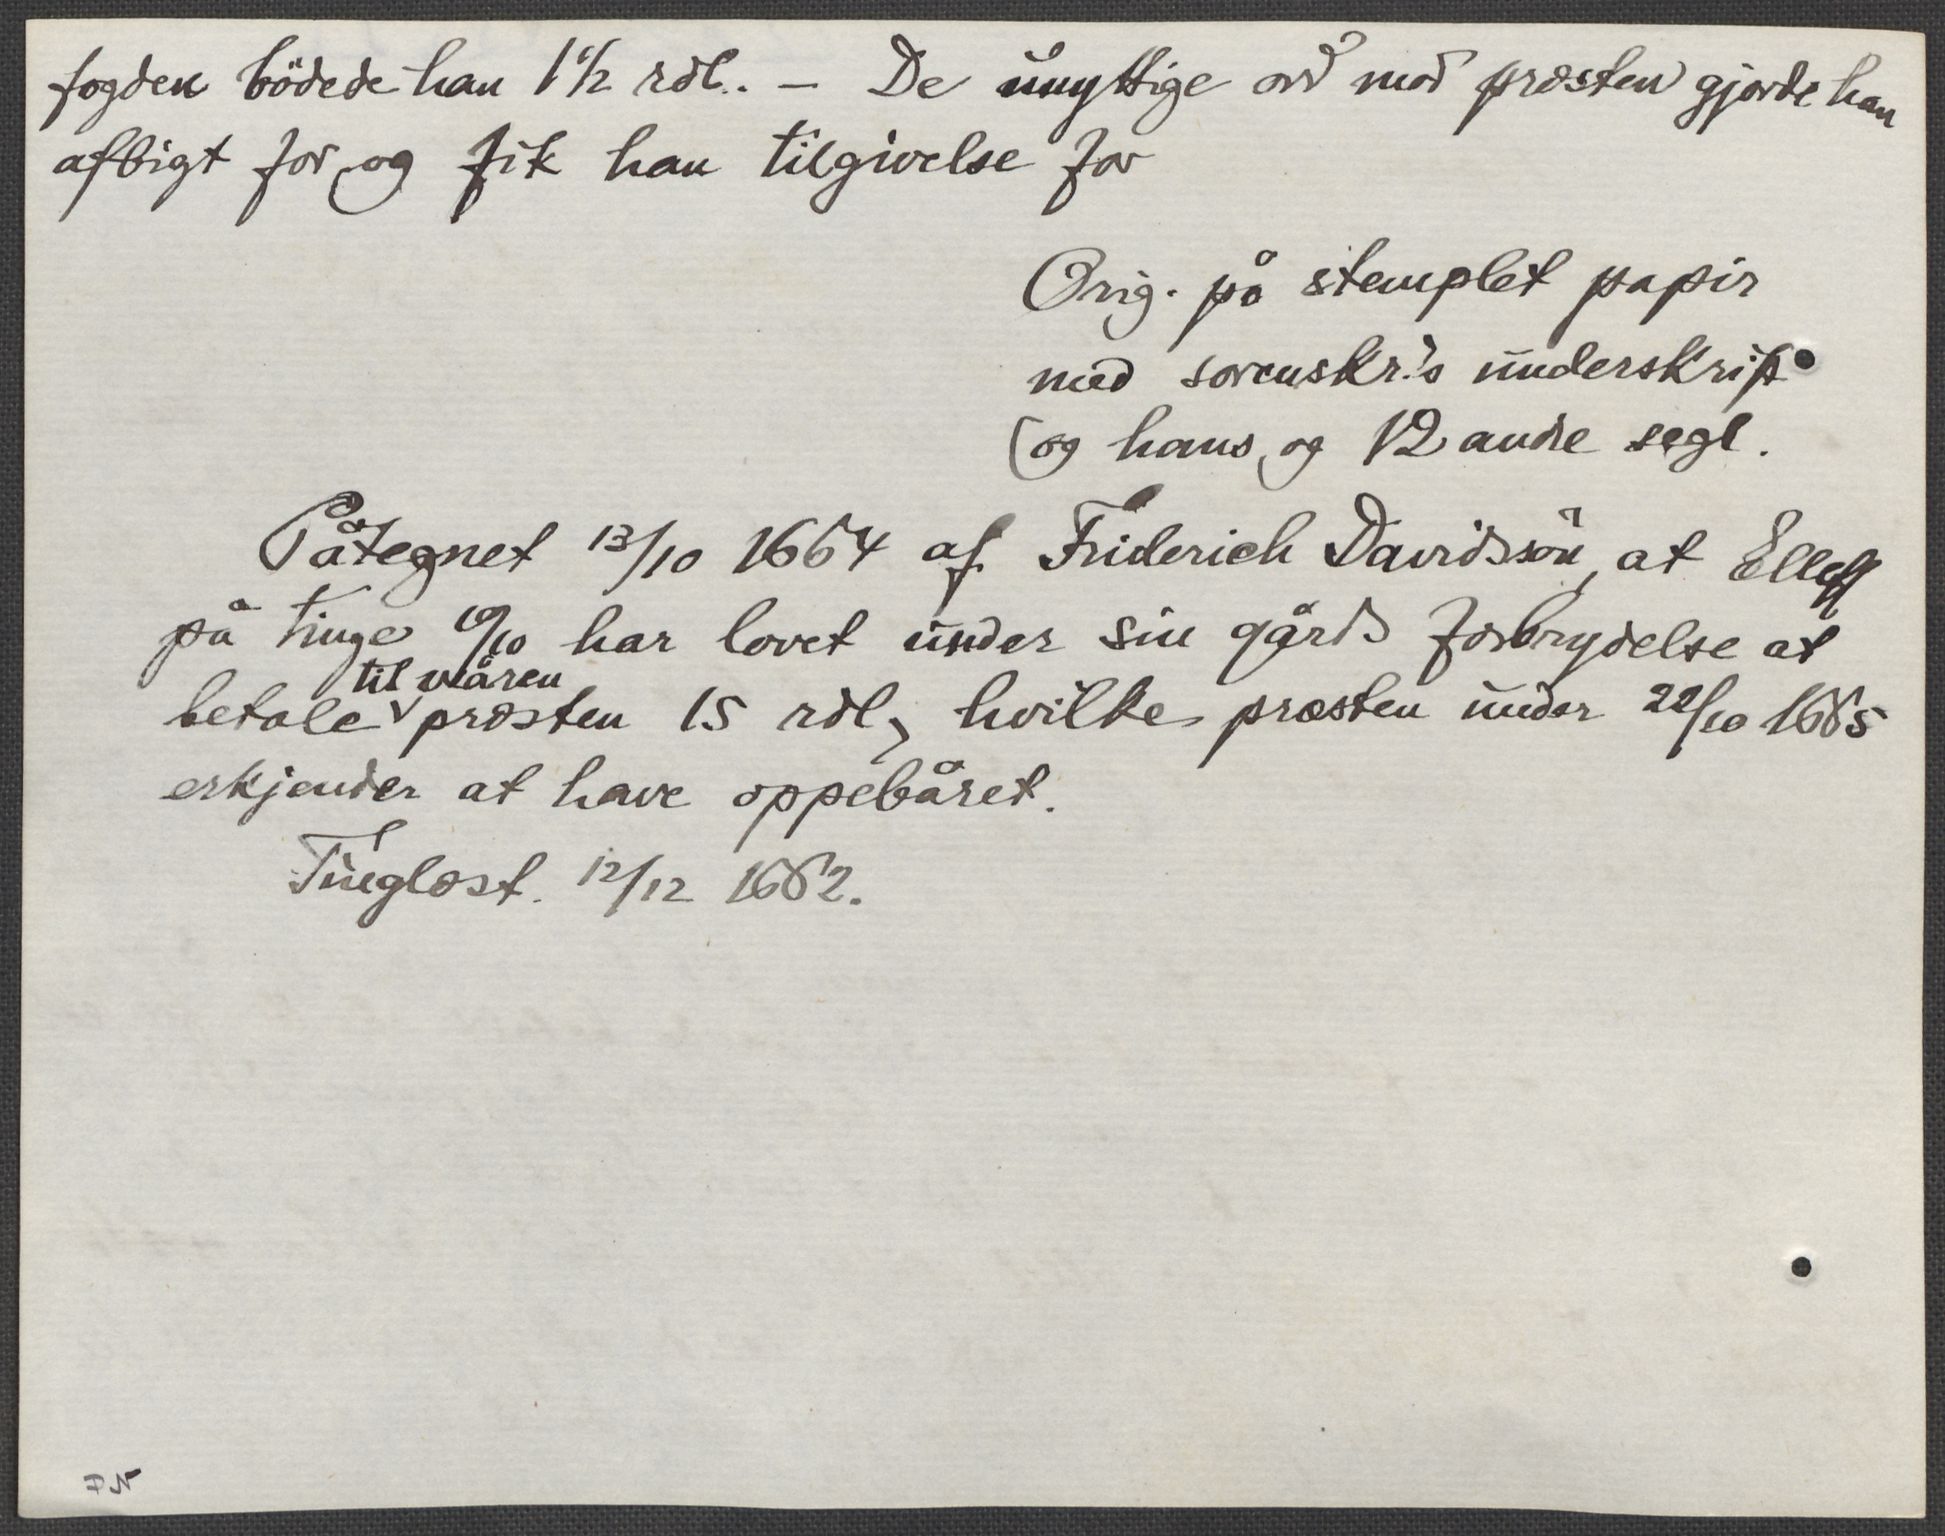 fogden bödede han 1 1/2 rdl. — De unyttige ord mod præsten gjorde han
afbigt for og fik han tilgivelse for
Orig. på stemplet papir
med sorenskr.'s underskrift
og hans og 12 andre segl.
Påtegnet 13/10 1664 af Friderich Davidssön, at Elleff
på tinge /10 har lovet under sin gårds forbrydelse at
til våren
betale præsten 15 rdl, hvilke præsten under 22/10 1665
erkjender at have oppebåret.
Tinglæst. 12/12 1662.